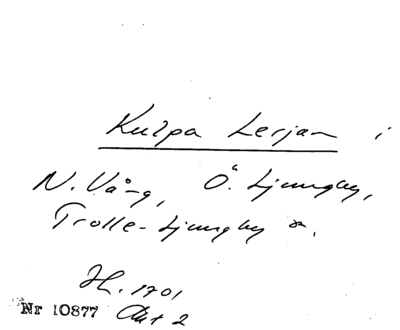 Kulpa Lerjan i
N. Vång, Ö. Ljungby,
Trolle-Ljungby m.
H. 1701
Nr 10877 Akt 2